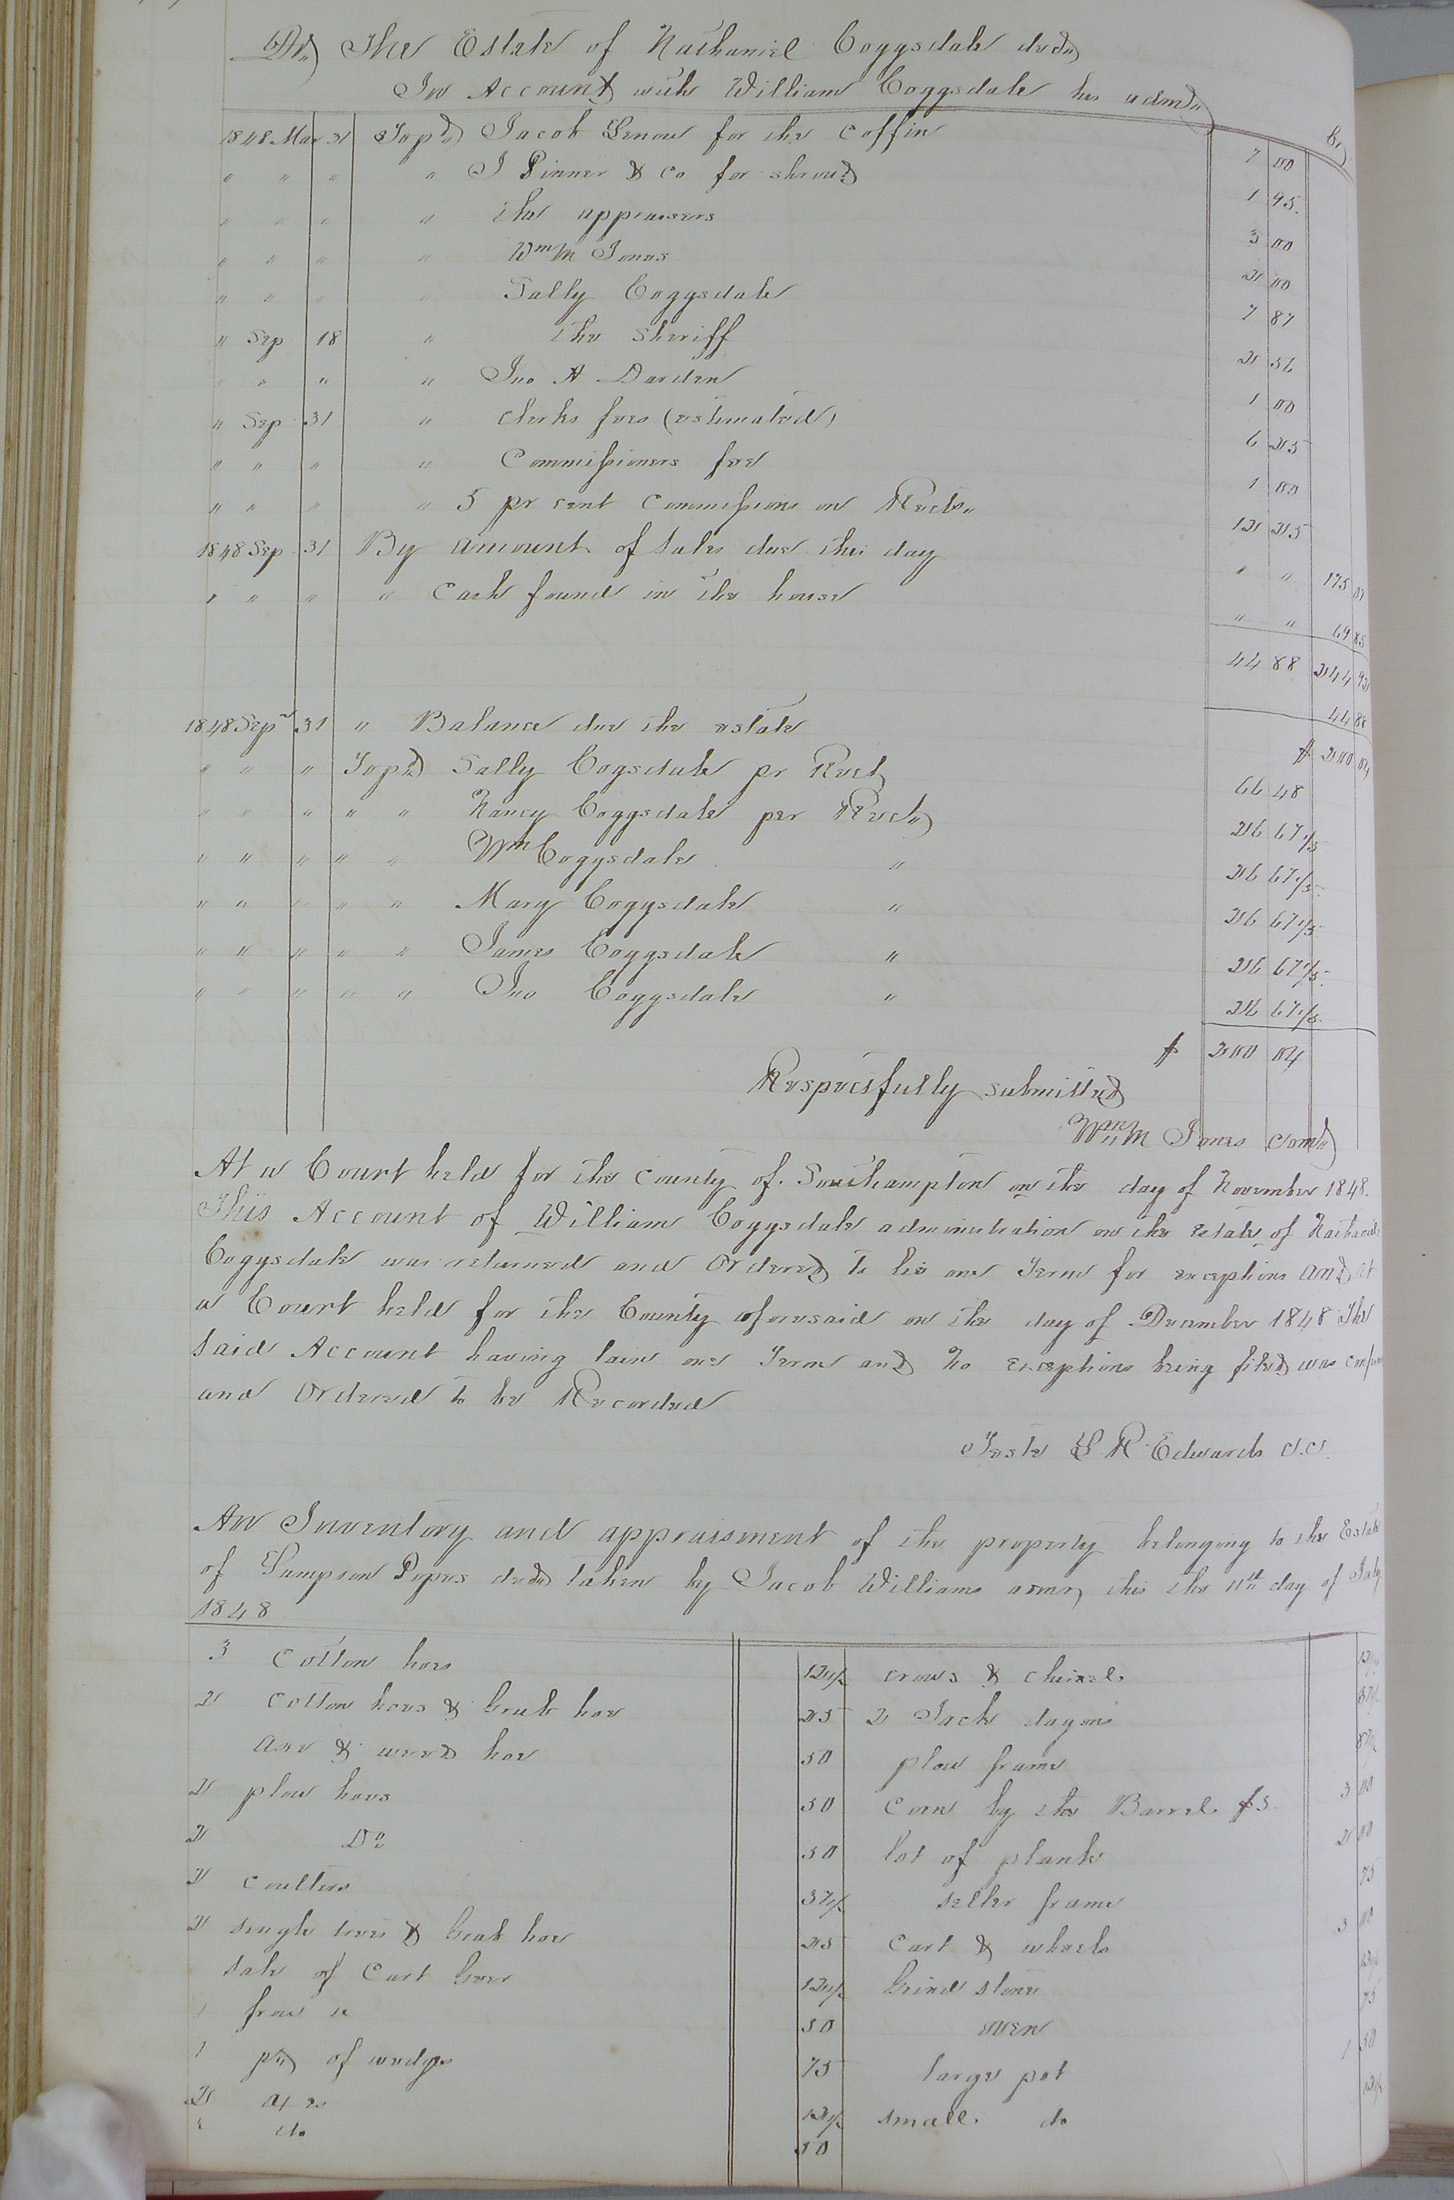 Dr) The Estate of Nathaniel Coggsdale decd
In Account with William Coggsdale his admr Cr
1848 Mar 31 To pd Jacob Senow for the coffin 7 00
" " " " J Pinner & Co for shroud 1 95
" " " " the appraisers 3 00
" " " " Wm M Jones 2 00
" " " Sally Coggsdale 7 87
" Sep 18 " the Sheriff 2 56
" " " " Jno A Darden 1 00
" Sep 31 " clerks fees (estimated) 6 25
" " " " Commissioners fee 1 00
" " " " 5 pr cent Commissions on Rects 12 25
1848 Sep 31 By amount of Sales due this day " " 175 07
" " " " Cash found in the house " " 69 85
44 88 244 92
44 88
1848 Sepr 31 " Balance due the estate $ 200 04
" " " To pd Sally Cogsdale pr Rect 66 68
" " " " " Nancy Coggsdale per Rect 26 67 1/5
" " " " " Wm Coggsdale " 26 67 1/5
" " " " " Mary Coggsdale " 26 67 1/5
" " " " " James Coggsdale " 26 67 1/5
" " " " " Jno Coggsdale " 26 67 1/5
$ 200 04
Respectfully submitted
Wm M Jones Comr
At a Court held for the County of Southampton on the day of November 1848.
This Account of William Coggsdale administration on the Estate of Nathaniel
Coggsdale was returned and Ordered to lie one Term for exceptions and at
a Court held for the County aforesaid on the day of December 1848 The
said Account having lain one Term and No exceptions being filed was confirm
and Ordered to be Recorded
Teste L R Edwards C.C.
An Inventory and appraisment of the property belonging to the Estate
of Sampson Popes decd taken by Jacob Williams this the 11th day of July
1848
3 Cotton hoes 12 1/2 crows & chisel 12 1/2
2 Cotton hoes & Grub hoe 25 2 Jack dagons 37 1/2
Axe & weed hoe 50 plow frame 87 1/2
2 plow hoes 50 Corn by the Barrel $3. 3 00
2 Do 50 lot of plank 2 00
2 Coulters 37 1/2 seller frame 75
2 single trees & Grub hoe 25 Cart & wheels 3 00
sale of Cart Gear 12 1/2 Grind stone 12 1/2
1 frow 50 oven 75
1 pr of wedges 75 large pot 1 50
2 axes 12 1/2 small do 12 1/2
" do 50